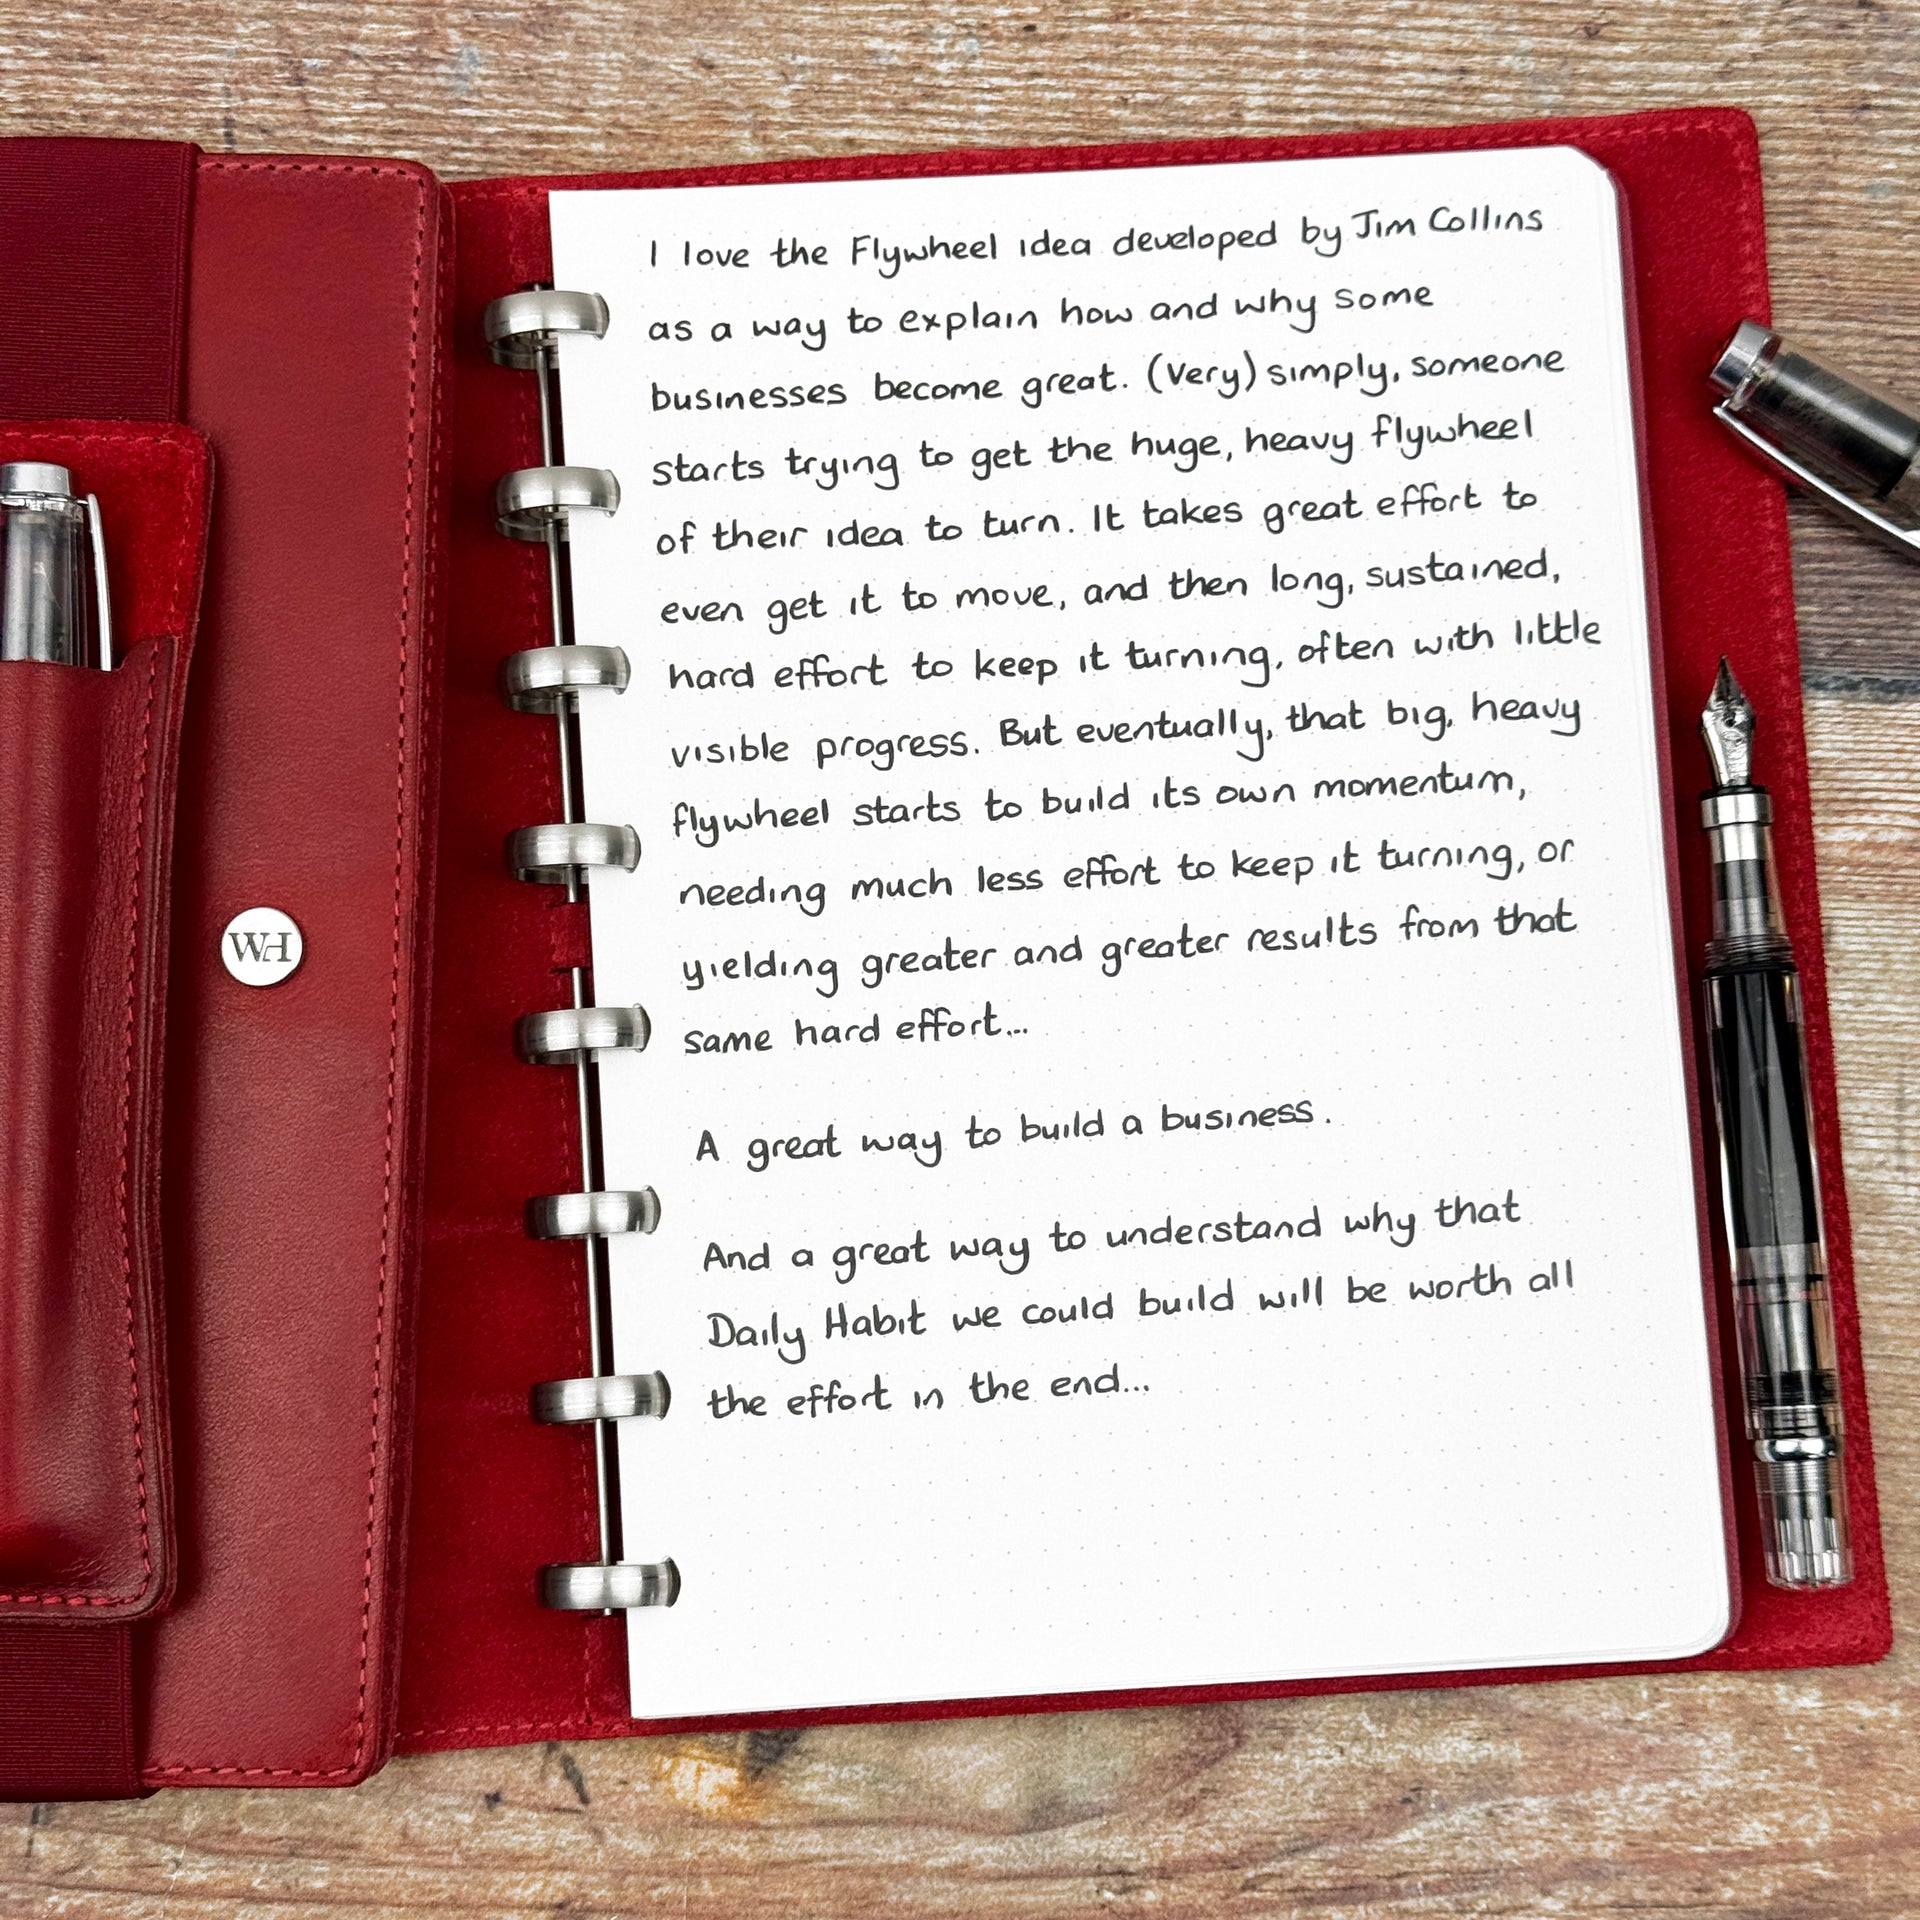 I love the Flywheel idea developed by Jim Collins
as a way to explain how and why some
businesses become great. (Very) simply, someone
starts trying to get the huge, heavy flywheel
of their idea to turn. It takes great effort to
even get it to move, and then long, sustained,
hard effort to keep it turning, often with little
visible progress. But eventually, that big, heavy
flywheel starts to build its own momentum,
needing much less effort to keep it turning, or
yielding greater and greater results from that
same hard effort...
A great way to build a business.
And a great way to understand why that
Daily Habit we could build will be worth all
the effort in the end...
WH